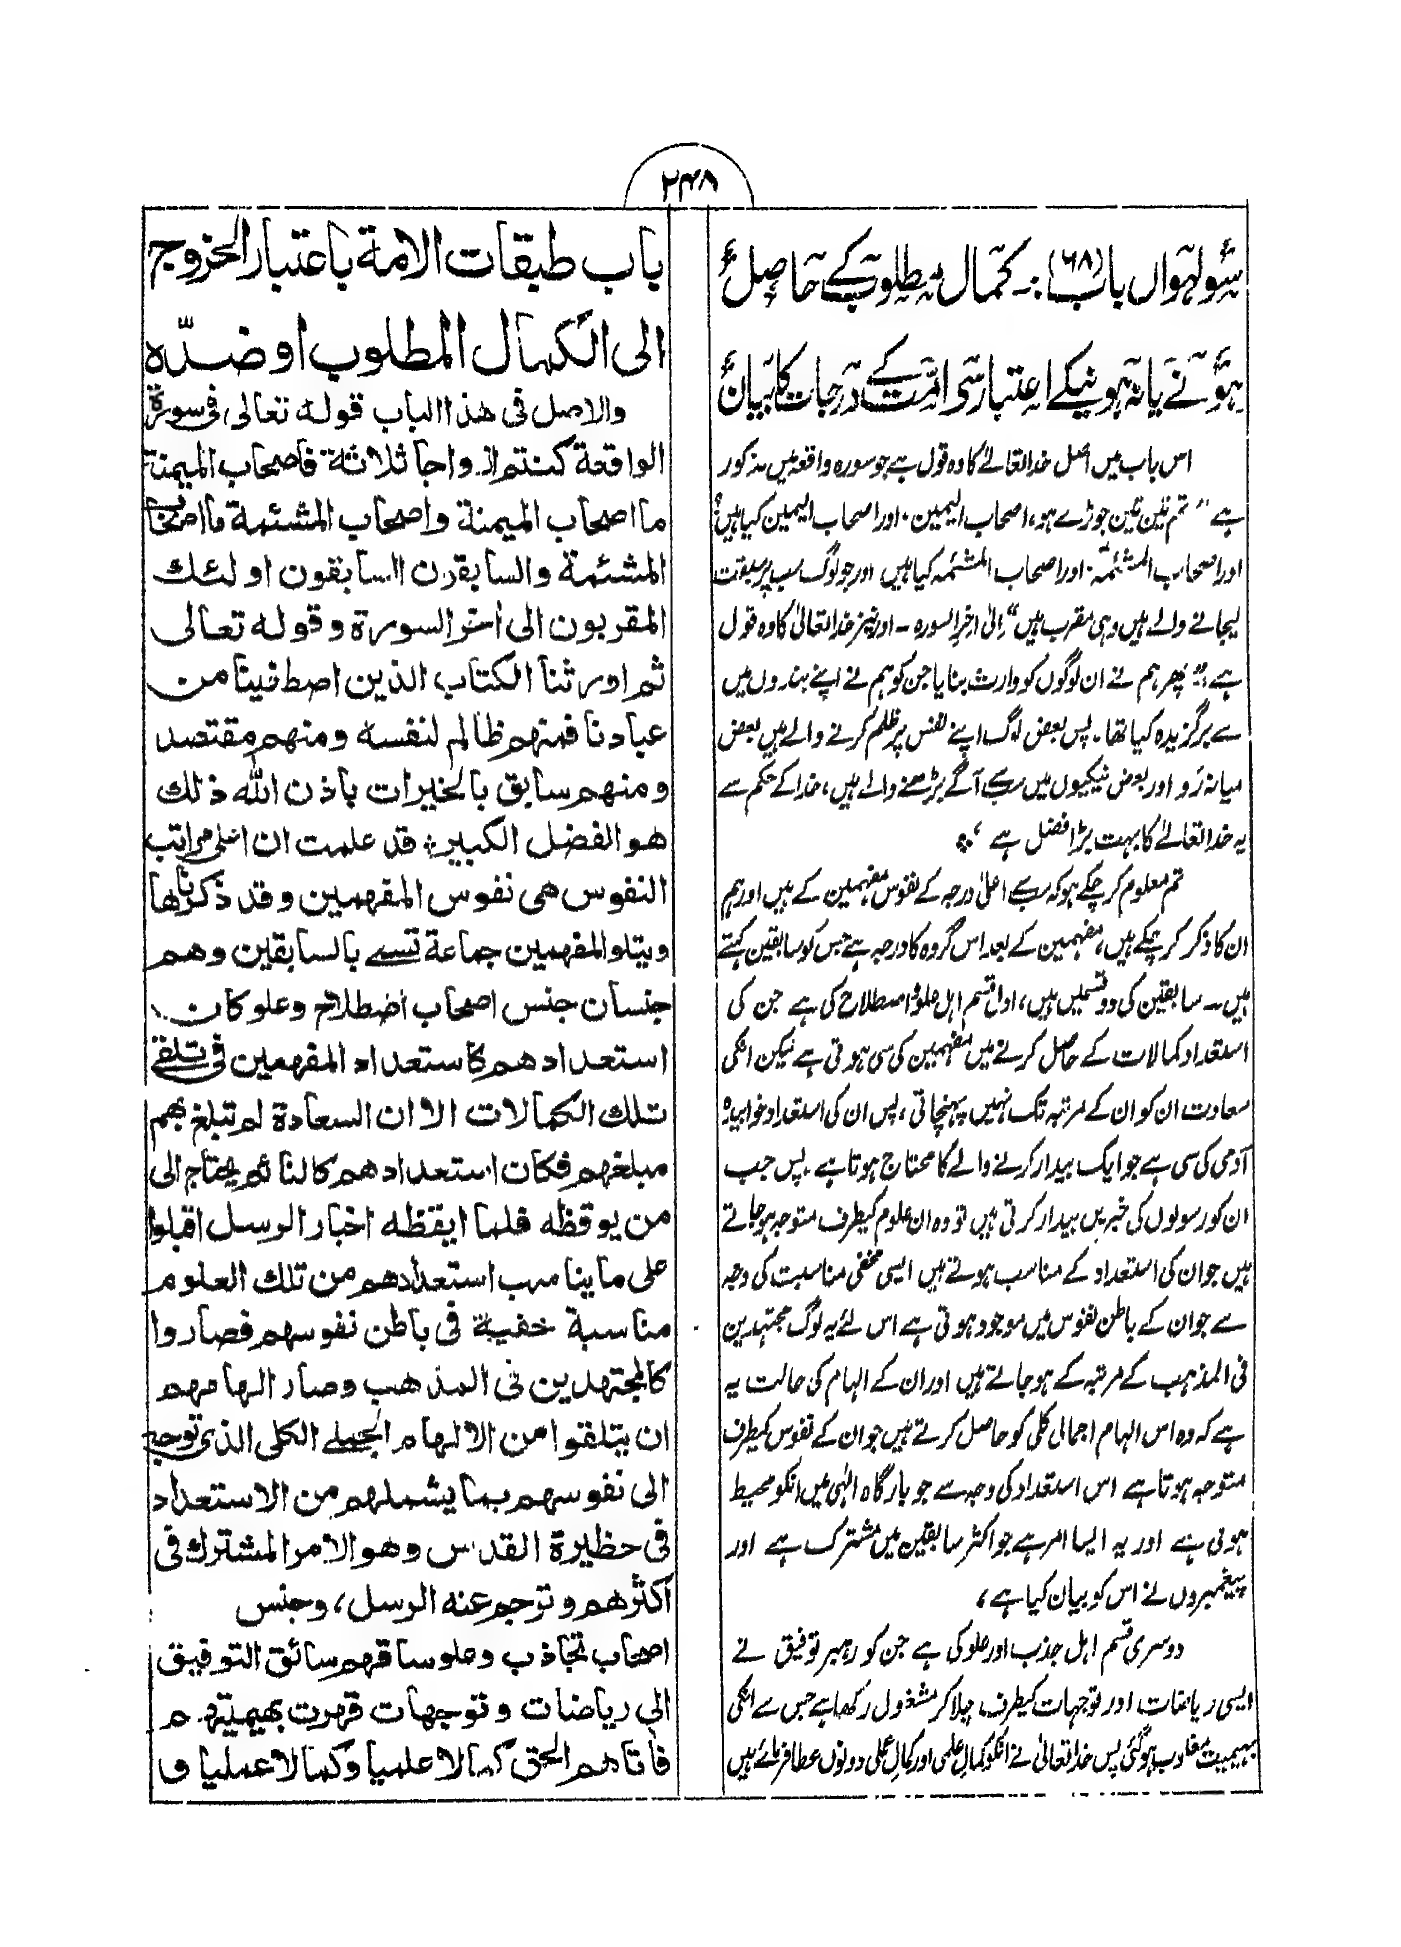 ۲۴۸
سولہواں باب (۶۸) :- کمال مطلوب کے حاصل
ہونے یا نہ ہونیکے اعتبار سے امت کے درجات کا بیان
اس باب میں اصل خدا تعالےٰ کا وہ قول ہے جو سورہ واقعہ میں مذکور
ہے " تم تین تین جوڑے ہو، اصحاب الیمین۔ اور اصحاب الیمین کیا ہیں؟
اور اصحاب المشئمہ۔ اور اصحاب المشئمہ کیا ہیں اور جو لوگ سب پر سبقت
لیجانے والے ہیں وہی مقرب ہیں" الیٰ اٰخر السورہ ۔ اور نیز خدا تعالیٰ کا وہ قول
ہے :" پھر ہم نے ان لوگوں کو وارث بنایا جن کو ہم نے اپنے بندوں میں
سے برگزیدہ کیا تھا۔ پس بعض لوگ اپنے نفس پر ظلم کرنے والے ہیں بعض
میانہ رَو اور بعض نیکیوں میں سب سے آگے بڑھنے والے ہیں، خدا کے حکم سے
یہ خدا تعالےٰ کا بہت بڑا فضل ہے "
تم معلوم کر چکے ہو کہ سب سے اعلیٰ درجہ کے نفوس مفہمین کے ہیں اور ہم
ان کا ذکر کر چکے ہیں، مفہمین کے بعد اس گروہ کا درجہ ہے جس کو سابقین کہتے
ہیں ۔ سابقین کی دو قسمیں ہیں، اول قسم اہل علو و اصطلاح کی ہے جن کی
استعداد کمالات کے حاصل کرنے میں مفہمین کی سی ہوتی ہے لیکن انکی
سعادت ان کو ان کے مرتبہ تک نہیں پہنچاتی، پس ان کی استعداد خوابیدہ
آدمی کی سی ہے جو ایک بیدار کرنے والے کا محتاج ہوتا ہے۔ پس جب
ان کو رسولوں کی خبریں بیدار کرتی ہیں تو وہ ان علوم کیطرف متوجہ ہو جاتے
ہیں جو ان کی استعداد کے مناسب ہوتے ہیں ایسی مخفی مناسبت کی وجہ
سے جو ان کے باطن نفوس میں موجود ہوتی ہے اس لئے یہ لوگ مجتہدین
فی المذہب کے مرتبہ کے ہو جاتے ہیں اور ان کے الہام کی حالت یہ
ہے کہ وہ اس الہام اجمالی کلی کو حاصل کرتے ہیں جو ان کے نفوس کیطرف
متوجہ ہوتا ہے اس استعداد کی وجہ سے جو بارگاہ الٰہی میں انکو محیط
ہوتی ہے اور یہ ایسا امر ہے جو اکثر سابقین میں مشترک ہے اور
پیغمبروں نے اس کو بیان کیا ہے،
دوسری قسم اہل جذب اور علو کی ہے جن کو رہبر توفیق نے
ایسی ریاضات اور توجہات کیطرف چلا کر مشغول رکھا ہے جس سے انکی
بہیمیت مغلوب ہو گئی پس خدا تعالیٰ نے انکو کمال علمی اور کمال عملی دونوں عطا فرمائے ہیں
باب طبقات الامة باعتبار الخروج
الى الكمال المطلوب او ضدّه
والاصل فى هذا الباب قوله تعالى فى سورة
الواقعة كنتم ازواجا ثلاثة فاصحاب الميمنة
ما اصحاب الميمنة واصحاب المشئمة ما اصحاب
المشئمة والسابقون السابقون اولئك
المقربون الى اٰخر السورة وقوله تعالى
ثم اورثنا الكتاب الذين اصطفينا من
عبادنا فمنهم ظالم لنفسه ومنهم مقتصد
ومنهم سابق بالخيرات باذن الله ذلك
هو الفضل الكبير، قد علمت ان اعلى مراتب
النفوس هى نفوس المفهمين وقد ذكرناها
ويتلو المفهمين جماعة تسمے بالسابقين وهم
جنسان جنس اصحاب اصطلاح وعلو كان
استعدادهم كاستعداد المفهمين فى تلقے
تلك الكمالات الا ان السعادة لم تبلغ بهم
مبلغهم فكان استعدادهم كالنائم يحتاج الى
من يوقظه فلما ايقظه اخبار الرسل اقبلوا
على ما يناسب استعدادهم من تلك العلوم
مناسبة خفية فى باطن نفوسهم فصاروا
كالمجتهدين فى المذهب وصار الهامهم
ان يتلقوا من الالهام الجملے الكلى الذى توجه
الى نفوسهم بما يشملهم من الاستعداد
فى حظيرة القدس وهو الامر المشترك فى
اكثرهم وترجم عنه الرسل، وجنس
اصحاب تجاذب وعلو ساقهم سائق التوفيق
الى رياضات وتوجهات قهرت بهيميتهم
فاتاهم الحق كمالا علميا وكمالا عمليا و